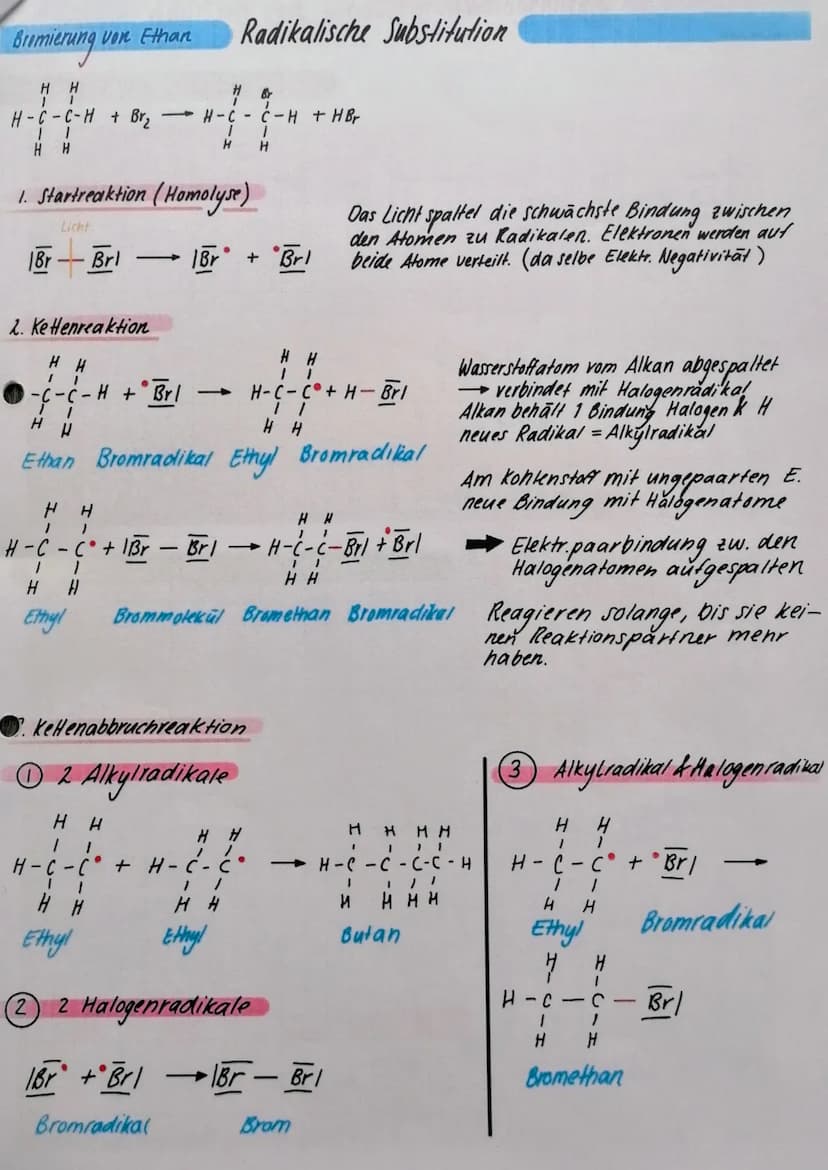 Bromierung von Ethan Radikalische Substitution
H H
H-C-C-H + Br2 → H-C-C-H + HBr
H Br
H H
H H
1. Startreaktion (Homolyse)
Licht
|Br + Br| → |Br• + •Br|
Das Licht spaltet die schwächste Bindung zwischen
den Atomen zu Radikalen. Elektronen werden auf
beide Atome verteilt. (da selbe Elektr. Negativität)
2. Kettenreaktion
H H
-C-C-H + •Br| → H-C-C• + H-Br|
H H
H H
H H
Ethan Bromradikal Ethyl Bromradikal
Wasserstoffatom vom Alkan abgespaltet
→ verbindet mit Halogenradikal
Alkan behält 1 Bindung Halogen & H
neues Radikal = Alkylradikal
Am Kohlenstoff mit ungepaarten E.
neue Bindung mit Halogenatome
H H
H-C-C• + |Br-Br| → H-C-C-Br| + •Br|
H H
H H
H H
Ethyl Brommolekül Bromethan Bromradikal
➡ Elektr.paarbindung zw. den
Halogenatomen aufgespalten
Reagieren solange, bis sie kei-
nen Reaktionspartner mehr
haben.
. Kettenabbruchreaktion
① 2 Alkylradikale
H H
H H
H H H H
H-C-C• + H-C-C• → H-C-C-C-C-H
H H
H H
H H H H
Ethyl Ethyl Butan
② 2 Halogenradikale
|Br• + •Br| → |Br-Br|
Bromradikal Brom
③ Alkylradikal & Halogenradikal
H H
H-C-C• + •Br| →
H H
Ethyl Bromradikal
H H
H-C-C-Br|
H H
Bromethan